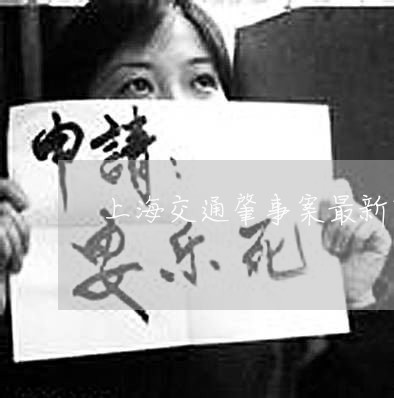 申請：
安乐死
上海交通肇事案最新